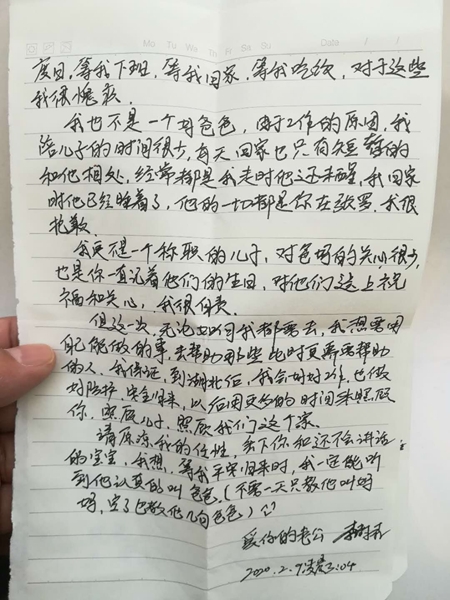 Mo Tu We Th Fr Sa Su Date / /
度日，等我下班，等我回家，等我吃饭，对于这些
我很愧疚．
我也不是一个好爸爸，由于工作的原因，我
陪儿子的时间很少，每天回家也只有短暂的
和他相处，经常都是我走时他还未醒，我回家
时他已经睡着了，他的一切都是你在张罗．我很
抱歉．
我更不是一个称职的儿子，对爸妈的关心很少，
也是你一直记着他们的生日，对他们送上祝
福和关心，我很自责．
但这一次，无论如何我都要去，我想要用
自己能做的事，去帮助那些此时更需要帮助
的人，我保证，到湖北后，我会好好工作，也做
好防护，安全归来，以后用更多的时间来照顾
你，照顾儿子，照顾我们这个家．
请原谅我的任性，丢下你和还不会讲话
的宝宝，我想，等我平安归来时，我一定能听
到他认真的叫爸爸．（不要一天只教他叫妈
妈，空了也教他几句爸爸）
爱你的老公
2020．2．9凌晨3:04